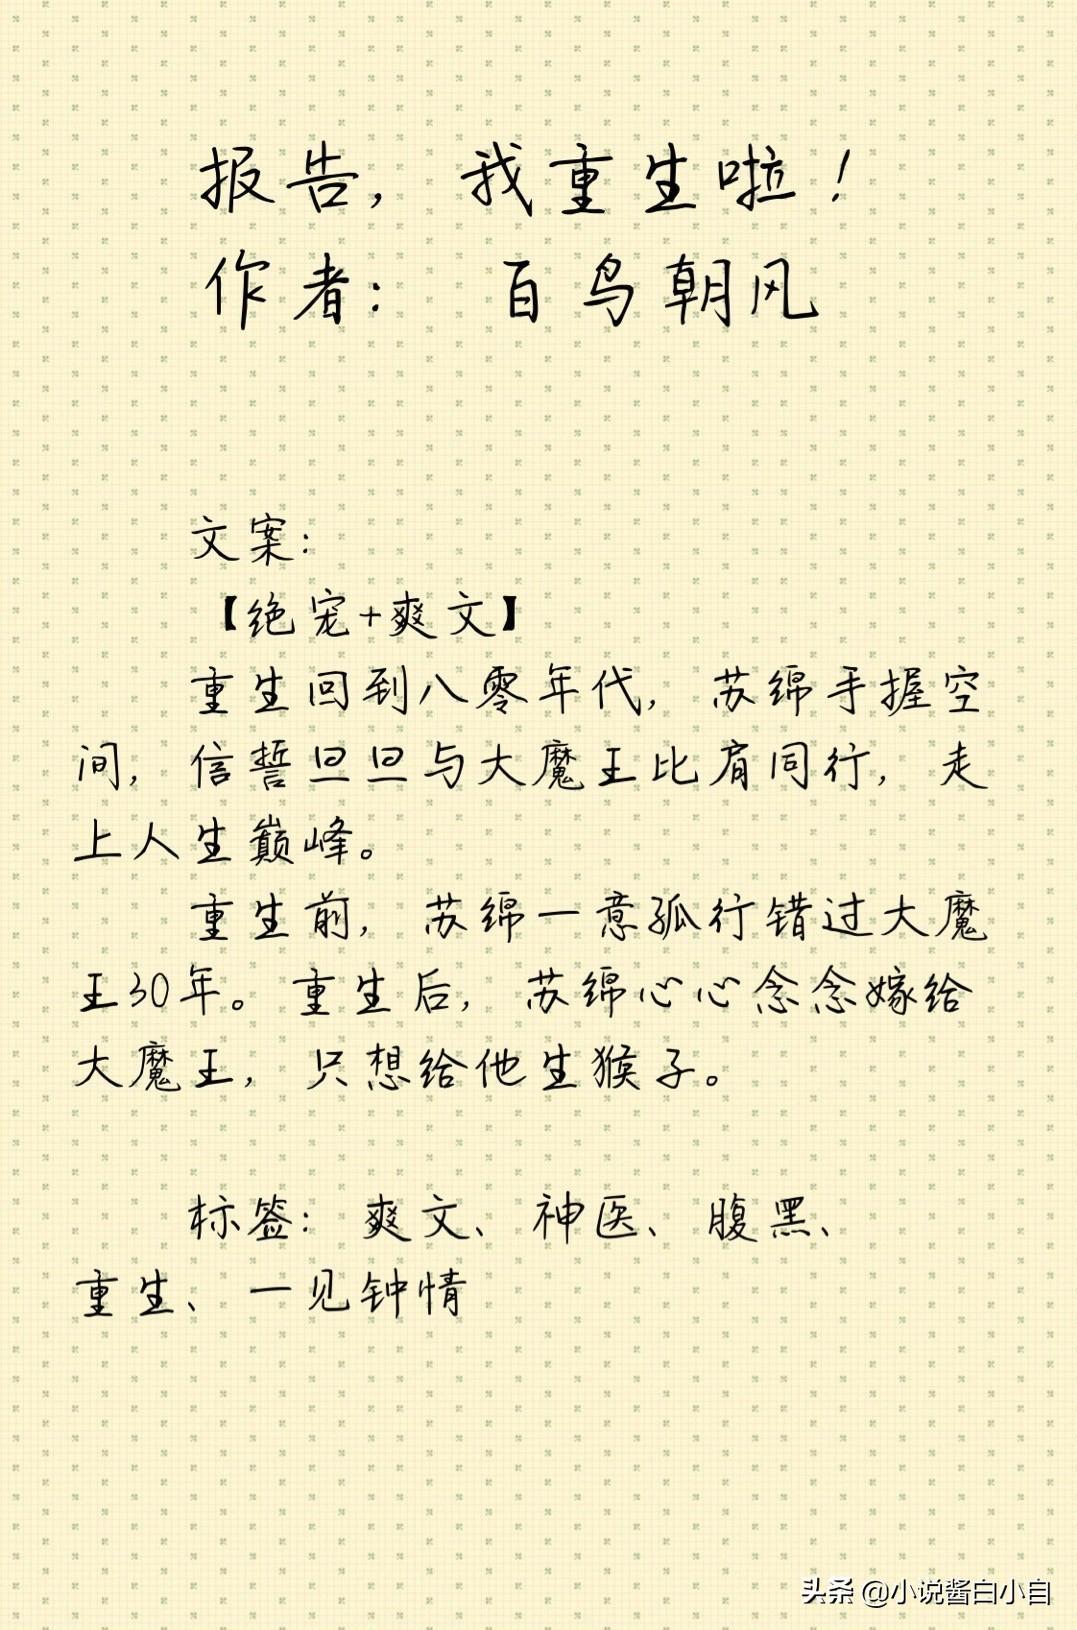 报告，我重生啦！
作者：百鸟朝凤
文案：
【绝宠+爽文】
重生回到八零年代，苏绵手握空
间，信誓旦旦与大魔王比肩同行，走
上人生巅峰。
重生前，苏绵一意孤行错过大魔
王30年。重生后，苏绵心心念念嫁给
大魔王，只想给他生猴子。
标签：爽文、神医、腹黑、
重生、一见钟情
头条 @小说酱白小白